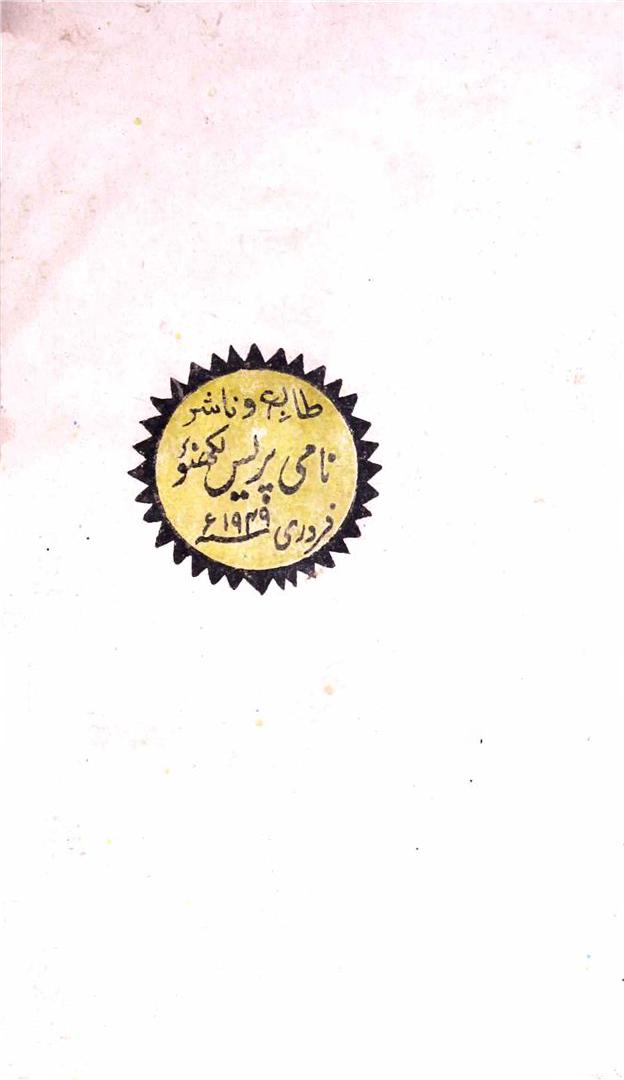 طابع و ناشر
نامی پریس لکھنؤ
فروری ۱۹۴۹ء